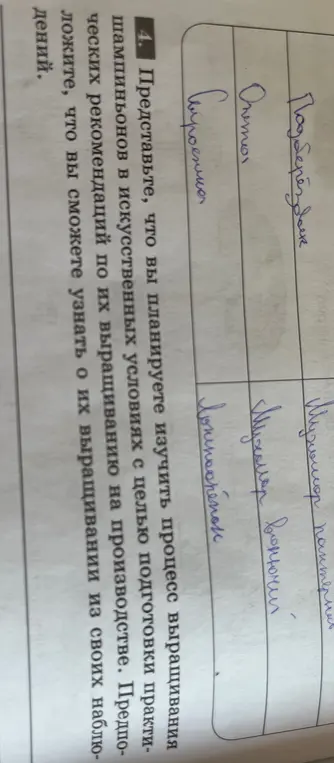 Подберёзовик Мухомор пантерный
Опята Мухомор вонючий
Сыроежка Ложноопёнок
4. Представьте, что вы планируете изучить процесс выращивания
шампиньонов в искусственных условиях с целью подготовки практи-
ческих рекомендаций по их выращиванию на производстве. Предпо-
ложите, что вы сможете узнать о их выращивании из своих наблю-
дений.